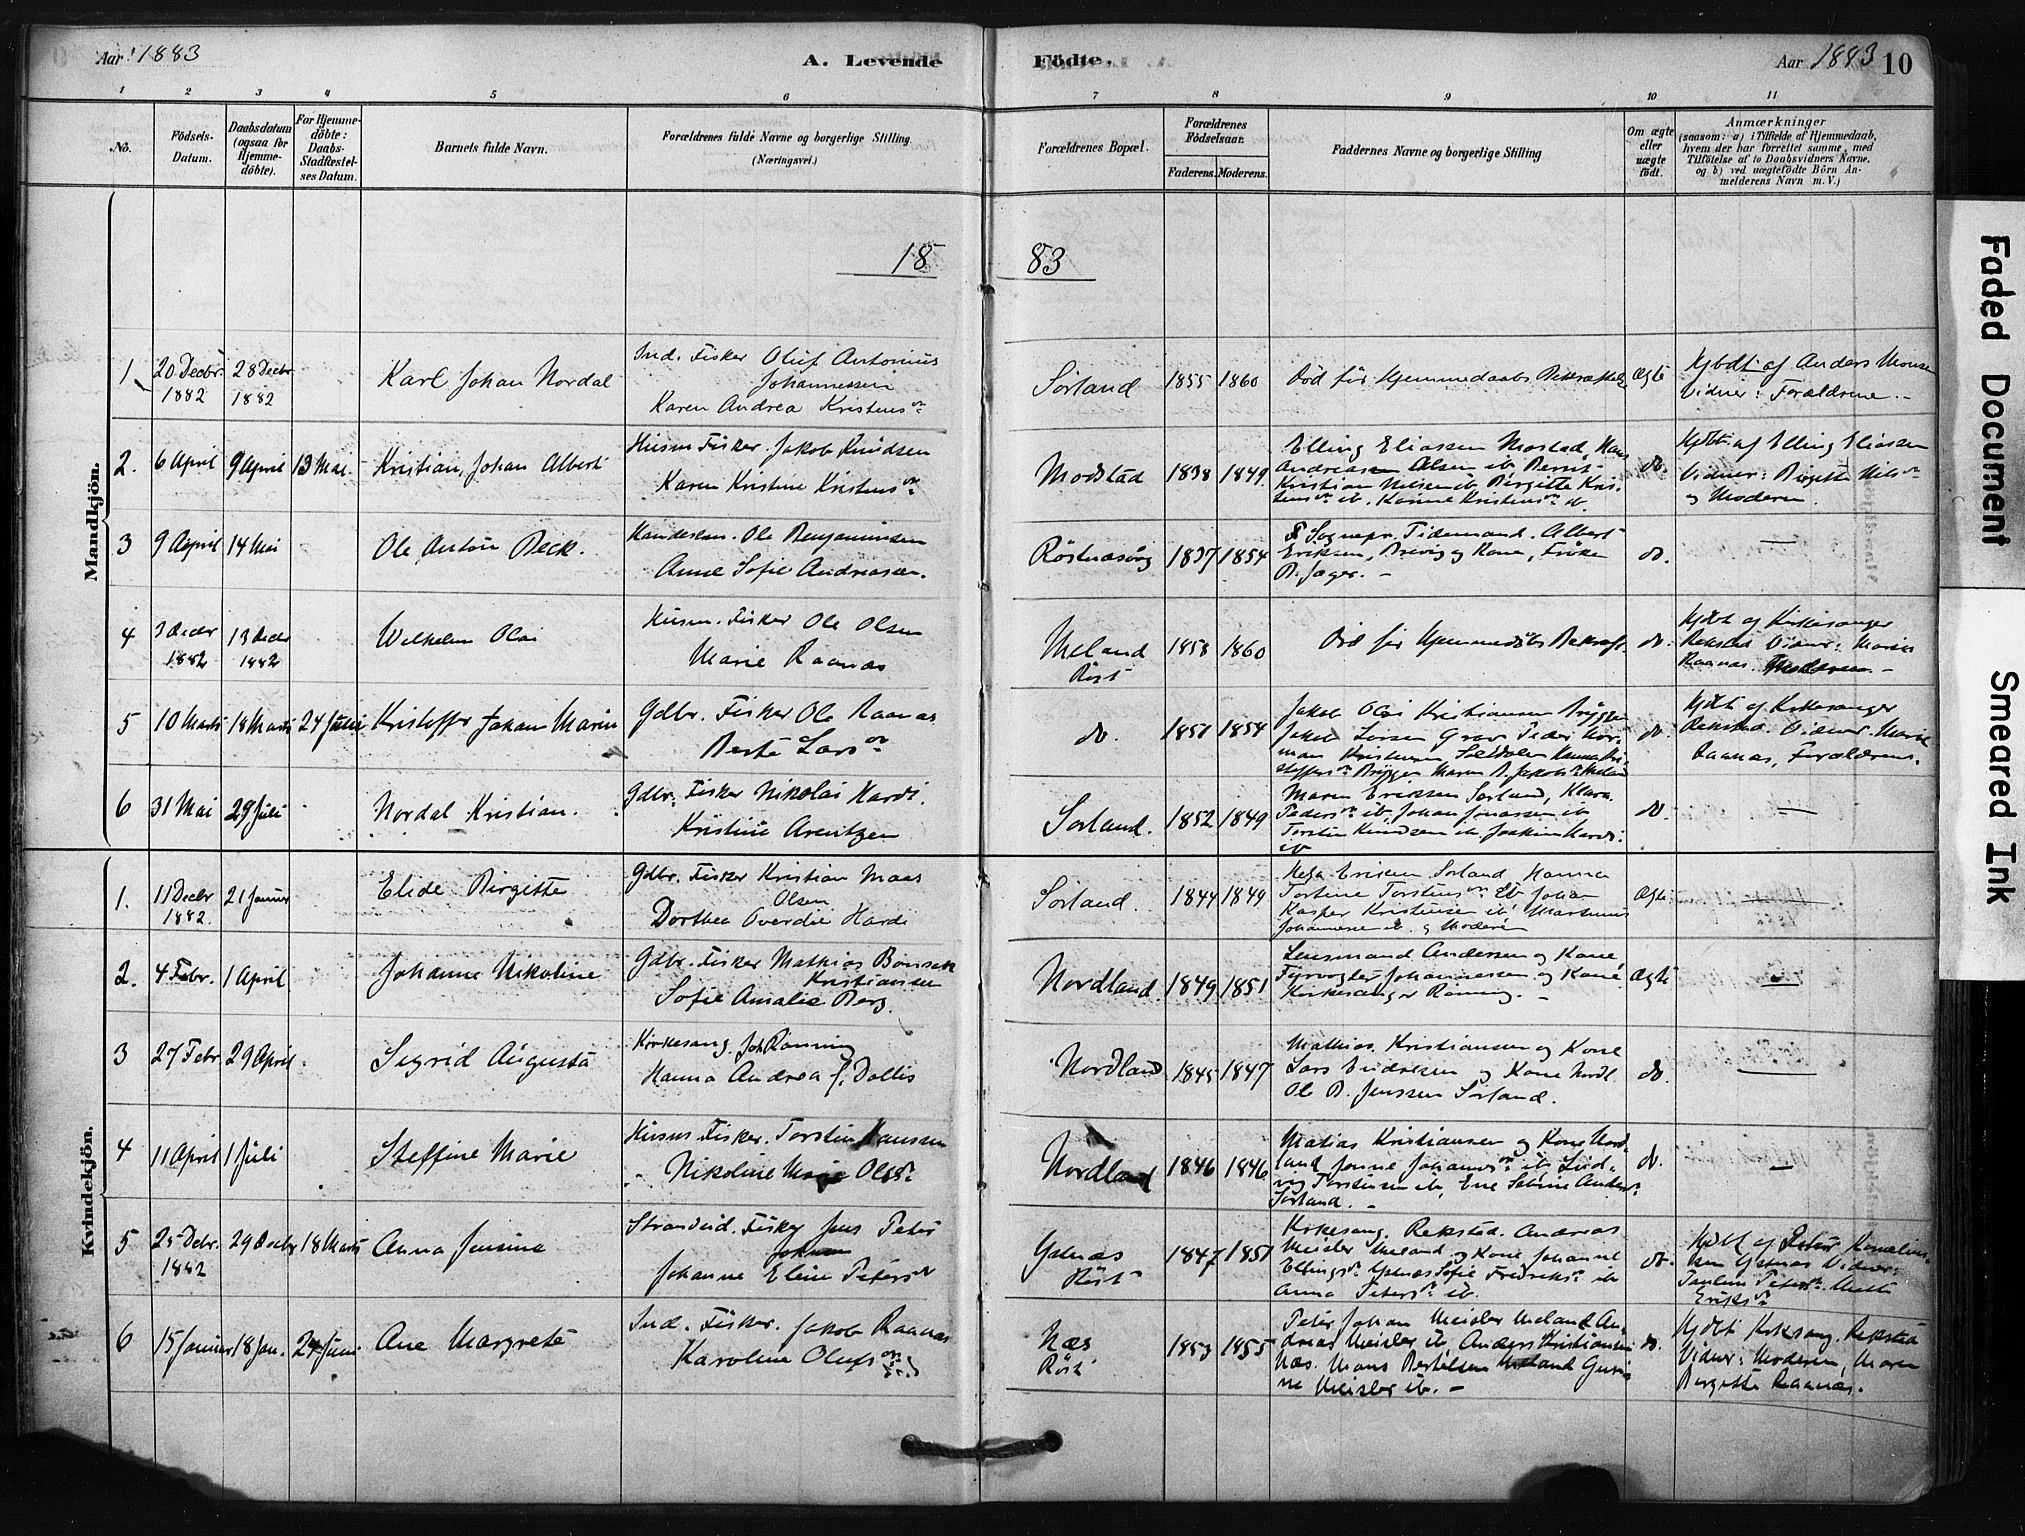 Aar 1883
A. Levende
Födte.
Aar 1883
10
1 2 3 4 5 6 7 8 9 10 11
No.
Födsels-
Datum.
Daabsdatum
(ogsaa for
Hjemme-
döbte).
For Hjemme-
döbte:
Daabs-
Stadfæstel-
ses Datum.
Barnets fulde Navn.
Forældrenes fulde Navne og borgerlige Stilling
(Næringsvei.)
Forældrenes Bopæl.
Forældrenes
Födselsaar.
Faderens. Moderens.
Faddernes Navne og borgerlige Stilling
Om ægte
eller
uægte
födt.
Anmærkninger
(saasom: a) i Tilfælde af Hjemmedaab,
hvem der har forrettet samme, med
Tilföielse af to Daabsvidners Navne,
og b) ved uægtefödte Börn An-
melderens Navn m. V.)
1883
Mandkjön.
1
20 Decbr.
1882
28 Decbr
1882
Karl Johan Nordal
Ind. Fisker Oluf Antonius
Johannessen
Karen Andrea Kristensen
Sørland
1855
1860
Død før Hjemmedaabs
Ægte
Hjdbt af Anders Monsen
Vidner: Forældrene. -
2.
6 April
9 April
13 Mai
Kristian Johan Albert
Husm. Fisker. Jakob Knudsen
Karen Kristine Kristensdr
Mostad
1838
1849
Elling Eliassen Mostad, Hans
Andreassen Olsen ib. Bernt
Kristian Nilsen ib. Birgitte Kris-
tensdr ib.
do.
Hjdbt af Elling Eliassen
Vidner: Birgitte Nilsdr
og Moderen
3
9 April
14 Mai
Ole Anton Beck.
Handelsm. Ole Benjaminsen
Anne Sofie Andreasen.
Röstnesvåg
1837
1854
Sognepr. Tidemand. Albert
Eriksen, Brevig og Kone, Frøken
B. Jæger. -
do.
—
4
3 Decbr
1882
13 Decbr
1882
Wilhelm Olai
Husm. Fisker Ole Olsen
Marie Raanas
Meland
Røst
1858
1860
Død før Hjemmedøbs Bekræft.
do.
Hjdbt af Kirkesanger
Rekstad Vidner: Maren
Raanas.
5
10 Marts
18 Marts
24 Juni
Kristoffer Johan Marin
Gdbr. Fisker Ole Raanas
Berte Larsdr
do.
1851
1854
Jakob Olai Kristiansen Brygge
do.
Hjdbt af Kirkesanger
Rekstad. Vidner Marie
Raanas, Forældrene.
6
31 Mai
29 Juli
Nordal Kristian.
Gdbr. Fisker Nikolai Hardi.
Kristine Arentzen
Sørland.
1852
1849
Maren Eriksen Sørland, Klara
Pedersdr ib. Johan Jonassen ib
Torsten Knudsen ib. Joakim Hardi
ib
do.
—
Kvindekjön.
1.
11 Decbr
1882.
21 Januar
Elide Birgitte
Gdbr. Fisker Kristian Maas
Olsen
Dorthea Overdie Hardi
Sørland.
1844
1849
Eriksen Sørland, Hanna
Tortine Torstensdr ib, Johan
Kasper Kristensen ib. Martinus
Johannesen ib. og Moderen
Ægte
2.
4 Febr.
1 April
Johanne Nikoline
Gdbr. Fisker Mathias Bonsak
Kristiansen
Sofie Amalie Berg.
Nordland.
1849
1851
Lensmand Andersen og Kone,
Fyrvogter Johannessen og Kone
Kirkesanger Rønning. -
Ægte
—
3
27 Febr
29 April
Sigrid Augusta
Kirkesang. Joh Rønning
Hanna Andrea f. Dollis
Nordland
1845
1847
Mathias Kristiansen og Kone
Lars og Kone Nordl.
Ole B. Jenssen Sørland.
do.
—
4
11 April
1 Juli
Steffine Marie
Husm. Fisker. Torstein Hanssen
Nikoline Marie Olsdr
Nordland
1846
1846
Matias Kristiansen og Kone Nord-
land, Johansdr ib. Lud-
vig Torstensen ib, Ene Sabine Andersdr
Sørland. -
do.
—
5
25 Decbr.
1882
29 Decbr
18 Marts
Anna Jensine
Strandsid. Fisker Jens Peter
Johanne Eline Petersdr
Ystnæs
Røst
1847
1851
Kirkesang. Rekstad. Andreas
Meisler Meland og Kone Johanne
Ellingsdr Ystnæs Sofie Fredriksdr ib
Anna Petersdr ib.
do.
Hjdbt af Peter Kornelius-
sen Ystnæs Vidner:
Petersdr. Mette
Eriksdr
6
15 Januar
18 Jan.
24 Juni
Ane Margrete
Ind. Fisker. Jakob Raanas
Karoline Olufsdr
Næs
Røst
1853
1855
Peter Johan Meisler Meland An-
dreas Meisler ib. Anders Kristiansen
Næs. Mons Bertelsen Meland Guri-
ne Meisler ib. -
do.
Hjdbt Kirkesang. Rekstad
Vidner: Moderen, Maren
Bergitte Raanas.
Faded Document
Smeared Ink